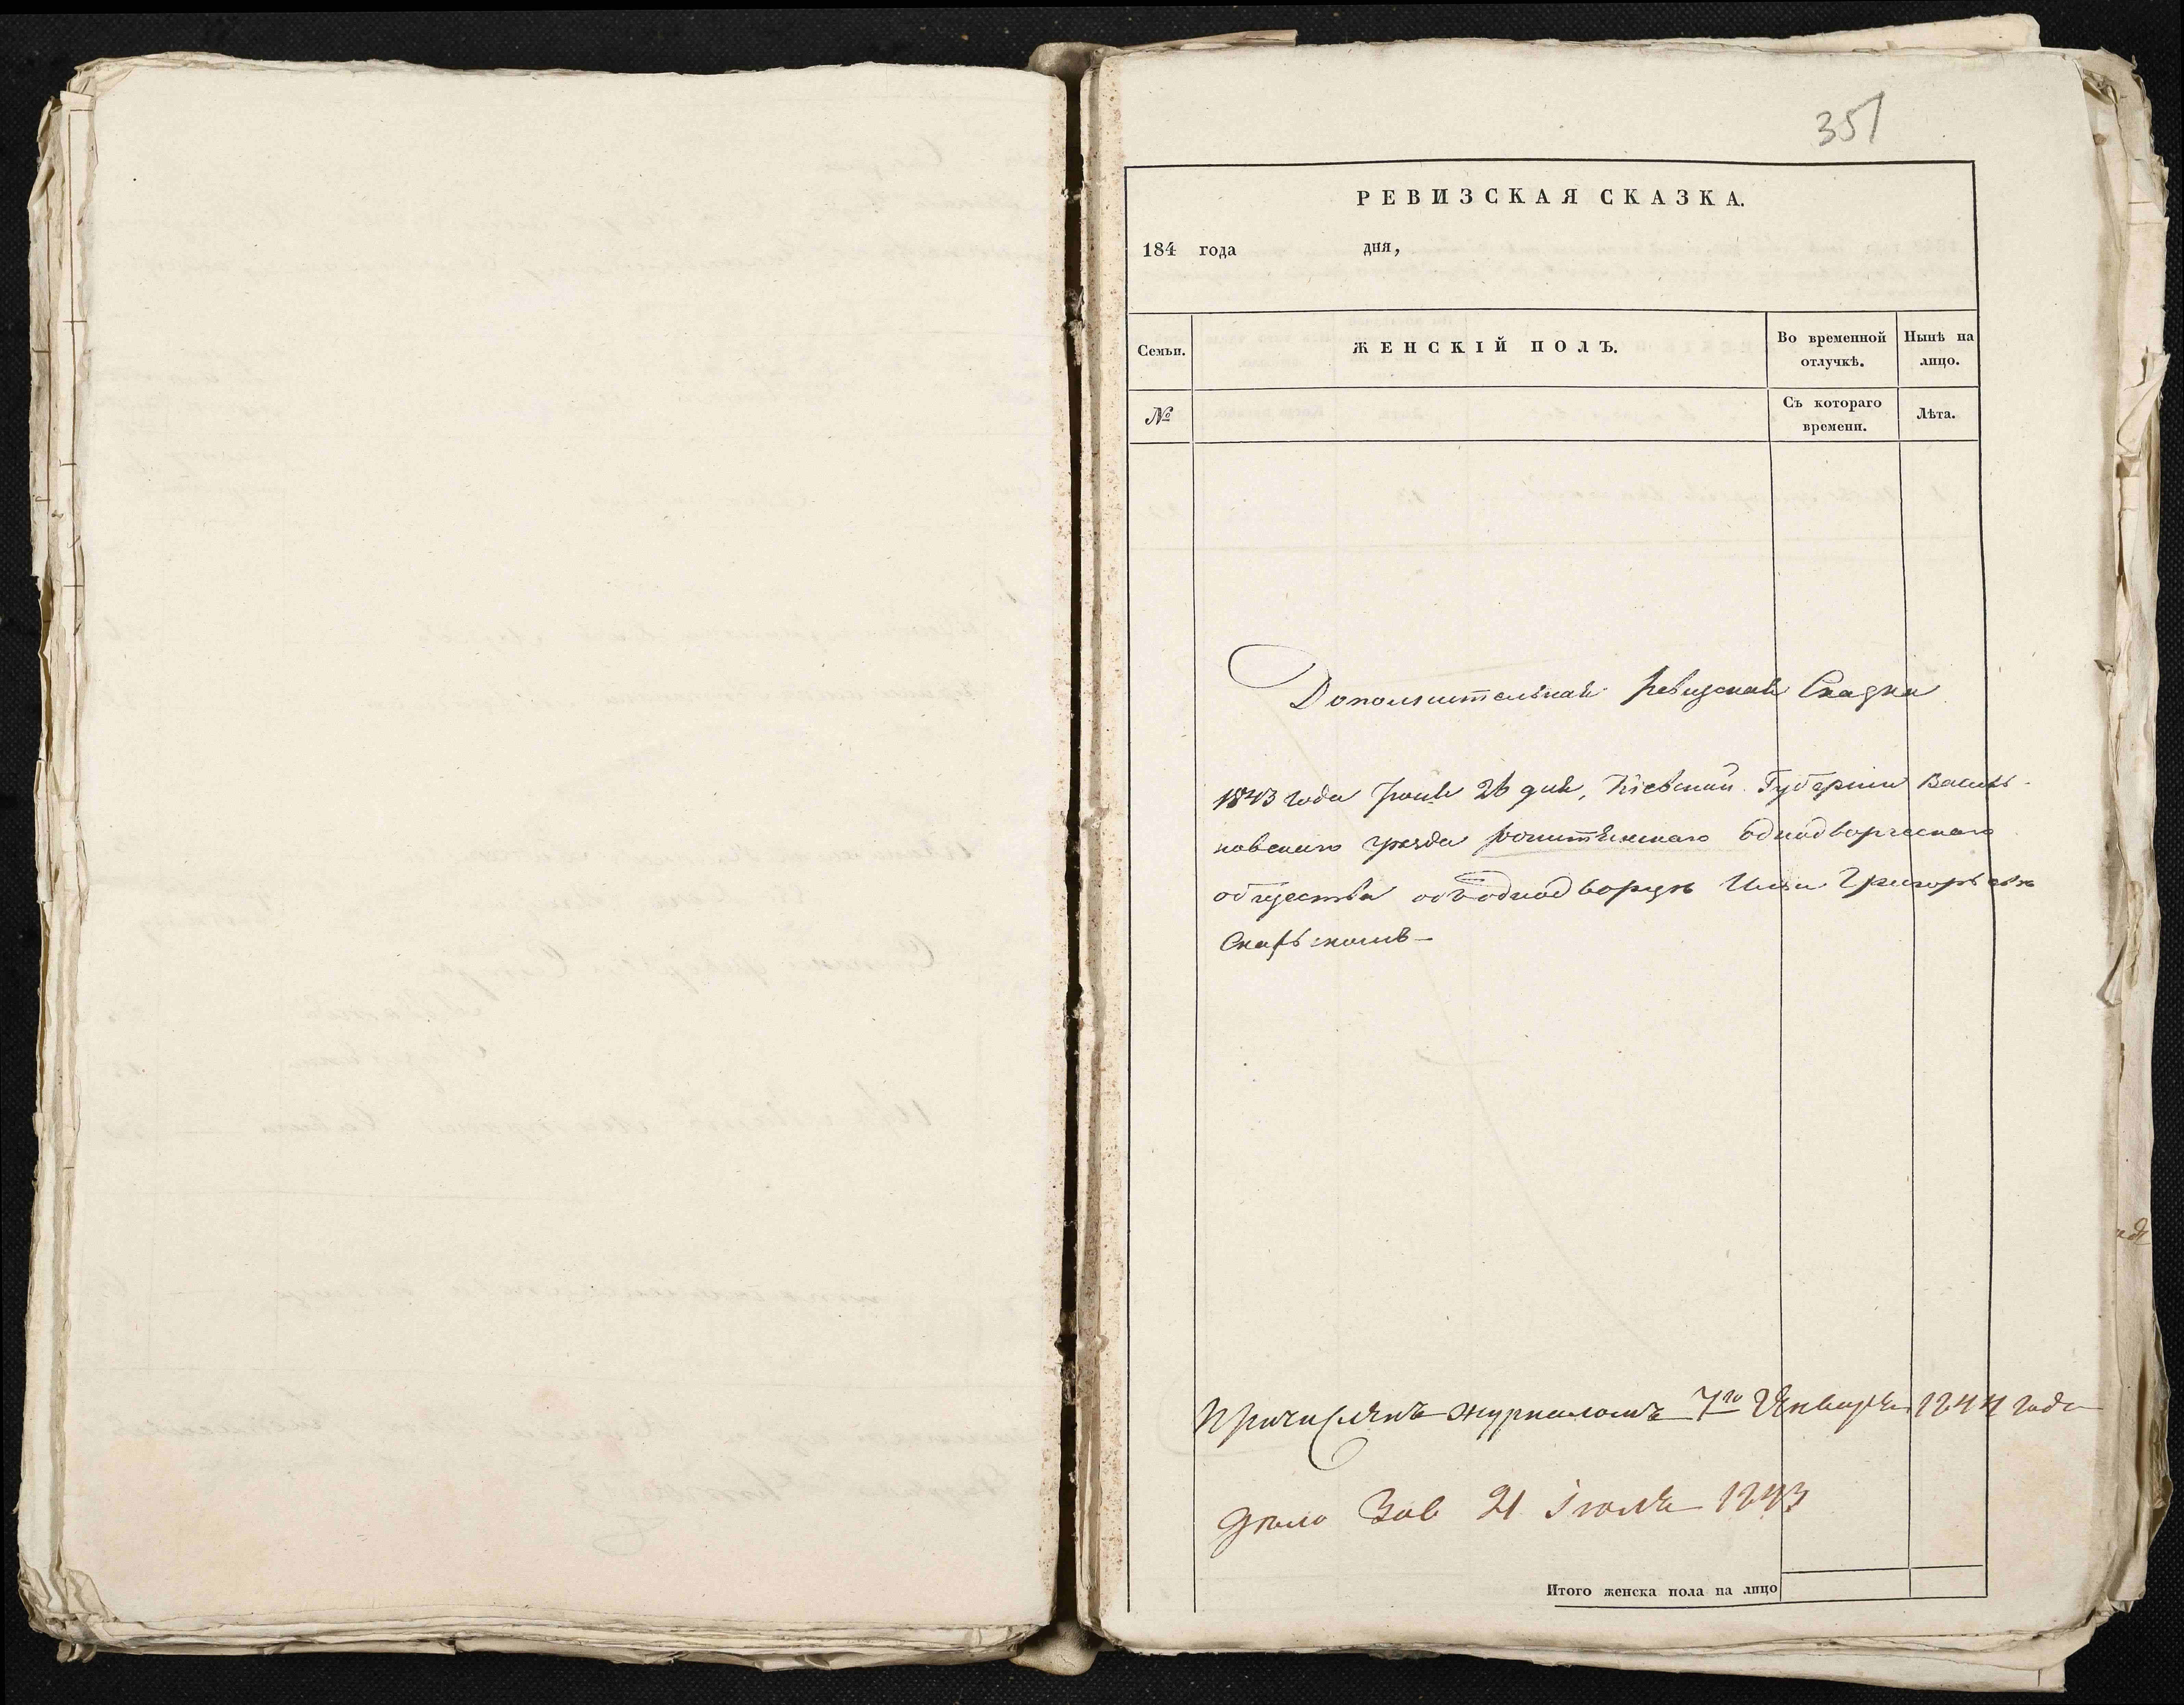 351
РЕВИЗСКАЯ СКАЗКА.
184 года дня,
Семьи.
ЖЕНСКІЙ ПОЛЪ.
Во временной отлучкѣ.
Нынѣ на лицо.
№
Съ котораго времени.
Лѣта.
Дополнительная ревизская Сказка
1843 года Іюня 26 дня, Кіевской Губерніи Василь-
ковского уезда однодворческаго
общества объ однодворце Григорьеве
Причисленъ журналомъ 7го Января 1844 года
дело 21 Іюля 1843
Итого женска пола на лицо